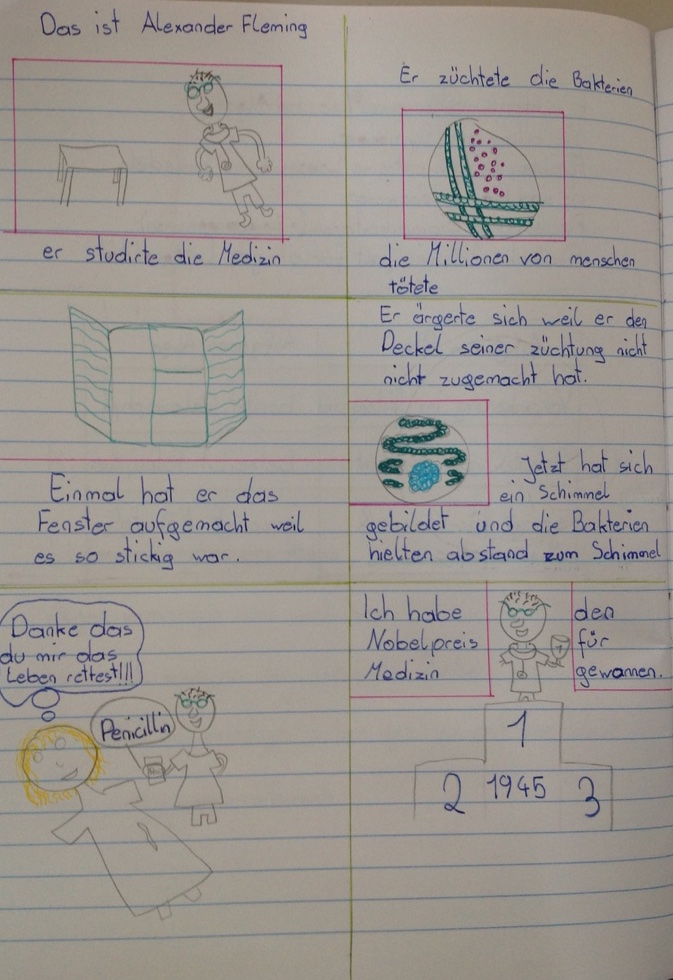 Das ist Alexander Fleming
er studirte die Medizin
Er züchtete die Bakterien
die Millionen von menschen
tötete
Einmal hat er das
Fenster aufgemacht weil
es so stickig war.
Er ärgerte sich weil er den
Deckel seiner züchtung nicht
nicht zugemacht hat.
Jetzt hat sich
ein Schimmel
gebildet und die Bakterien
hielten abstand zum Schimmel
Danke das
du mir das
Leben rettest!!!
Penicillin
Ich habe den
Nobelpreis für
Medizin gewannen.
1
2 1945 3